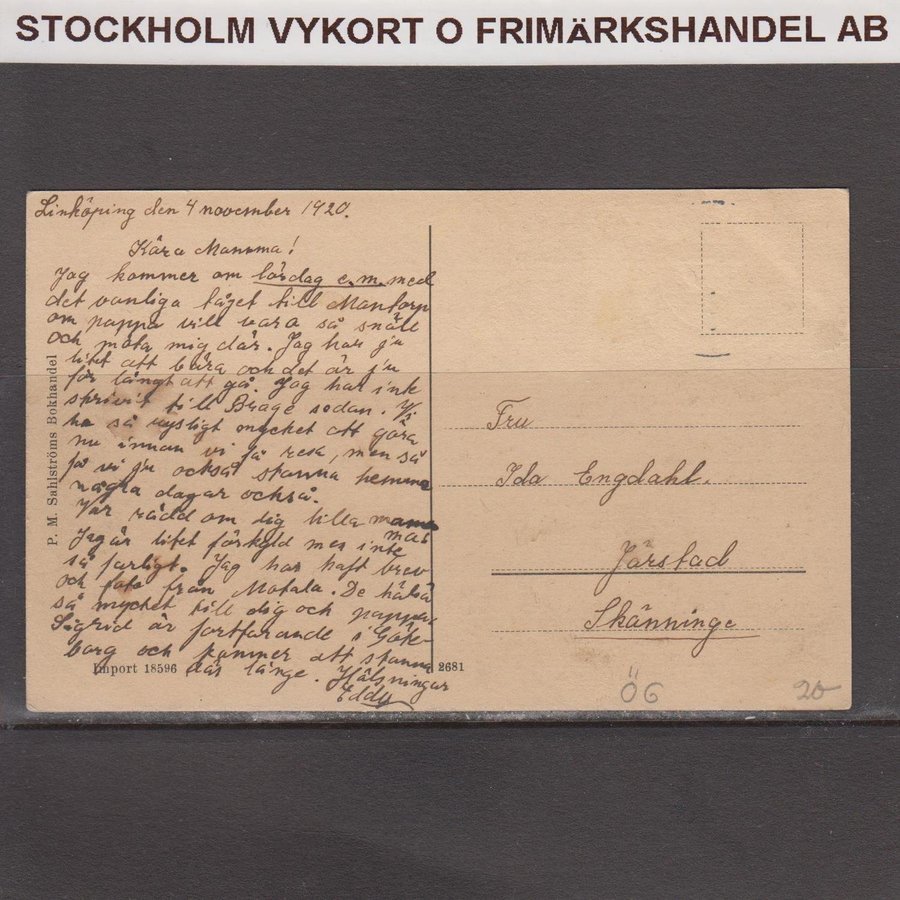 STOCKHOLM VYKORT O FRIMÄRKSHANDEL AB
Linköping den 4 november 1920.
Kära Mamma!
Jag kommer om lördag e.m. med
det vanliga tåget till Mantorp
om pappa vill vara så snäll
och möta mig där. Jag har j'u
litet att bära och det är j'u
för långt att gå. Jag har inte
skrivit till Brage sedan. Vi
ha så rysligt mycket att göra
nu innan vi få resa, men så
få vi j'u också stanna hemma
några dagar också.
Var rädd om dig lilla mamma
Jag är litet förkyld men inte
så farligt. Jag har haft brev
och foto från Motala. De hälsa
så mycket till dig och pappa.
Sigrid är fortfarande i Göte-
borg och kommer att stanna
där länge. Hälsningar
Eddy
P. M. Sahlströms Bokhandel
Import 18596
2681
Fru
Ida Engdahl.
Järstad
Skänninge
ÖG
20